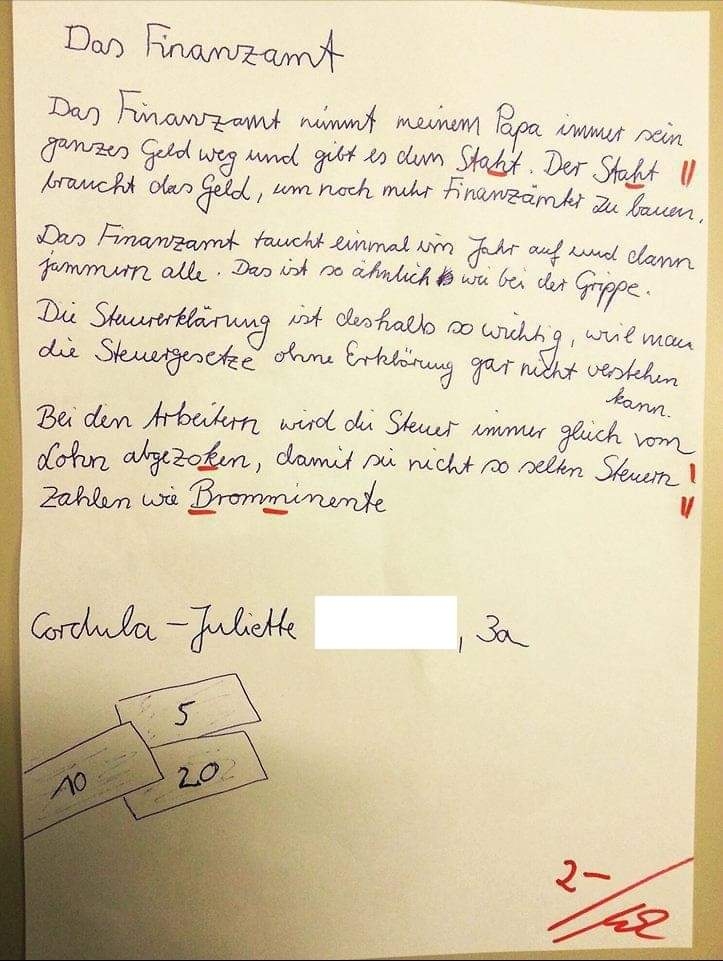 Das Finanzamt
Das Finanzamt nimmt meinem Papa immer sein
ganzes Geld weg und gibt es dem Staht. Der Staht
braucht das Geld, um noch mehr Finanzämter zu bauen.
Das Finanzamt taucht einmal im Jahr auf und dann
jammern alle. Das ist so ähnlich wie bei der Grippe.
Die Steuererklärung ist deshalb so wichtig, weil man
die Steuergesetze ohne Erklärung gar nicht verstehen
kann.
Bei den Arbeitern wird die Steuer immer gleich vom
Lohn abgezoken, damit sie nicht so selten Steuern
zahlen wie Bromminente
Cordula-Juliette , 3a
5
10
20
2-